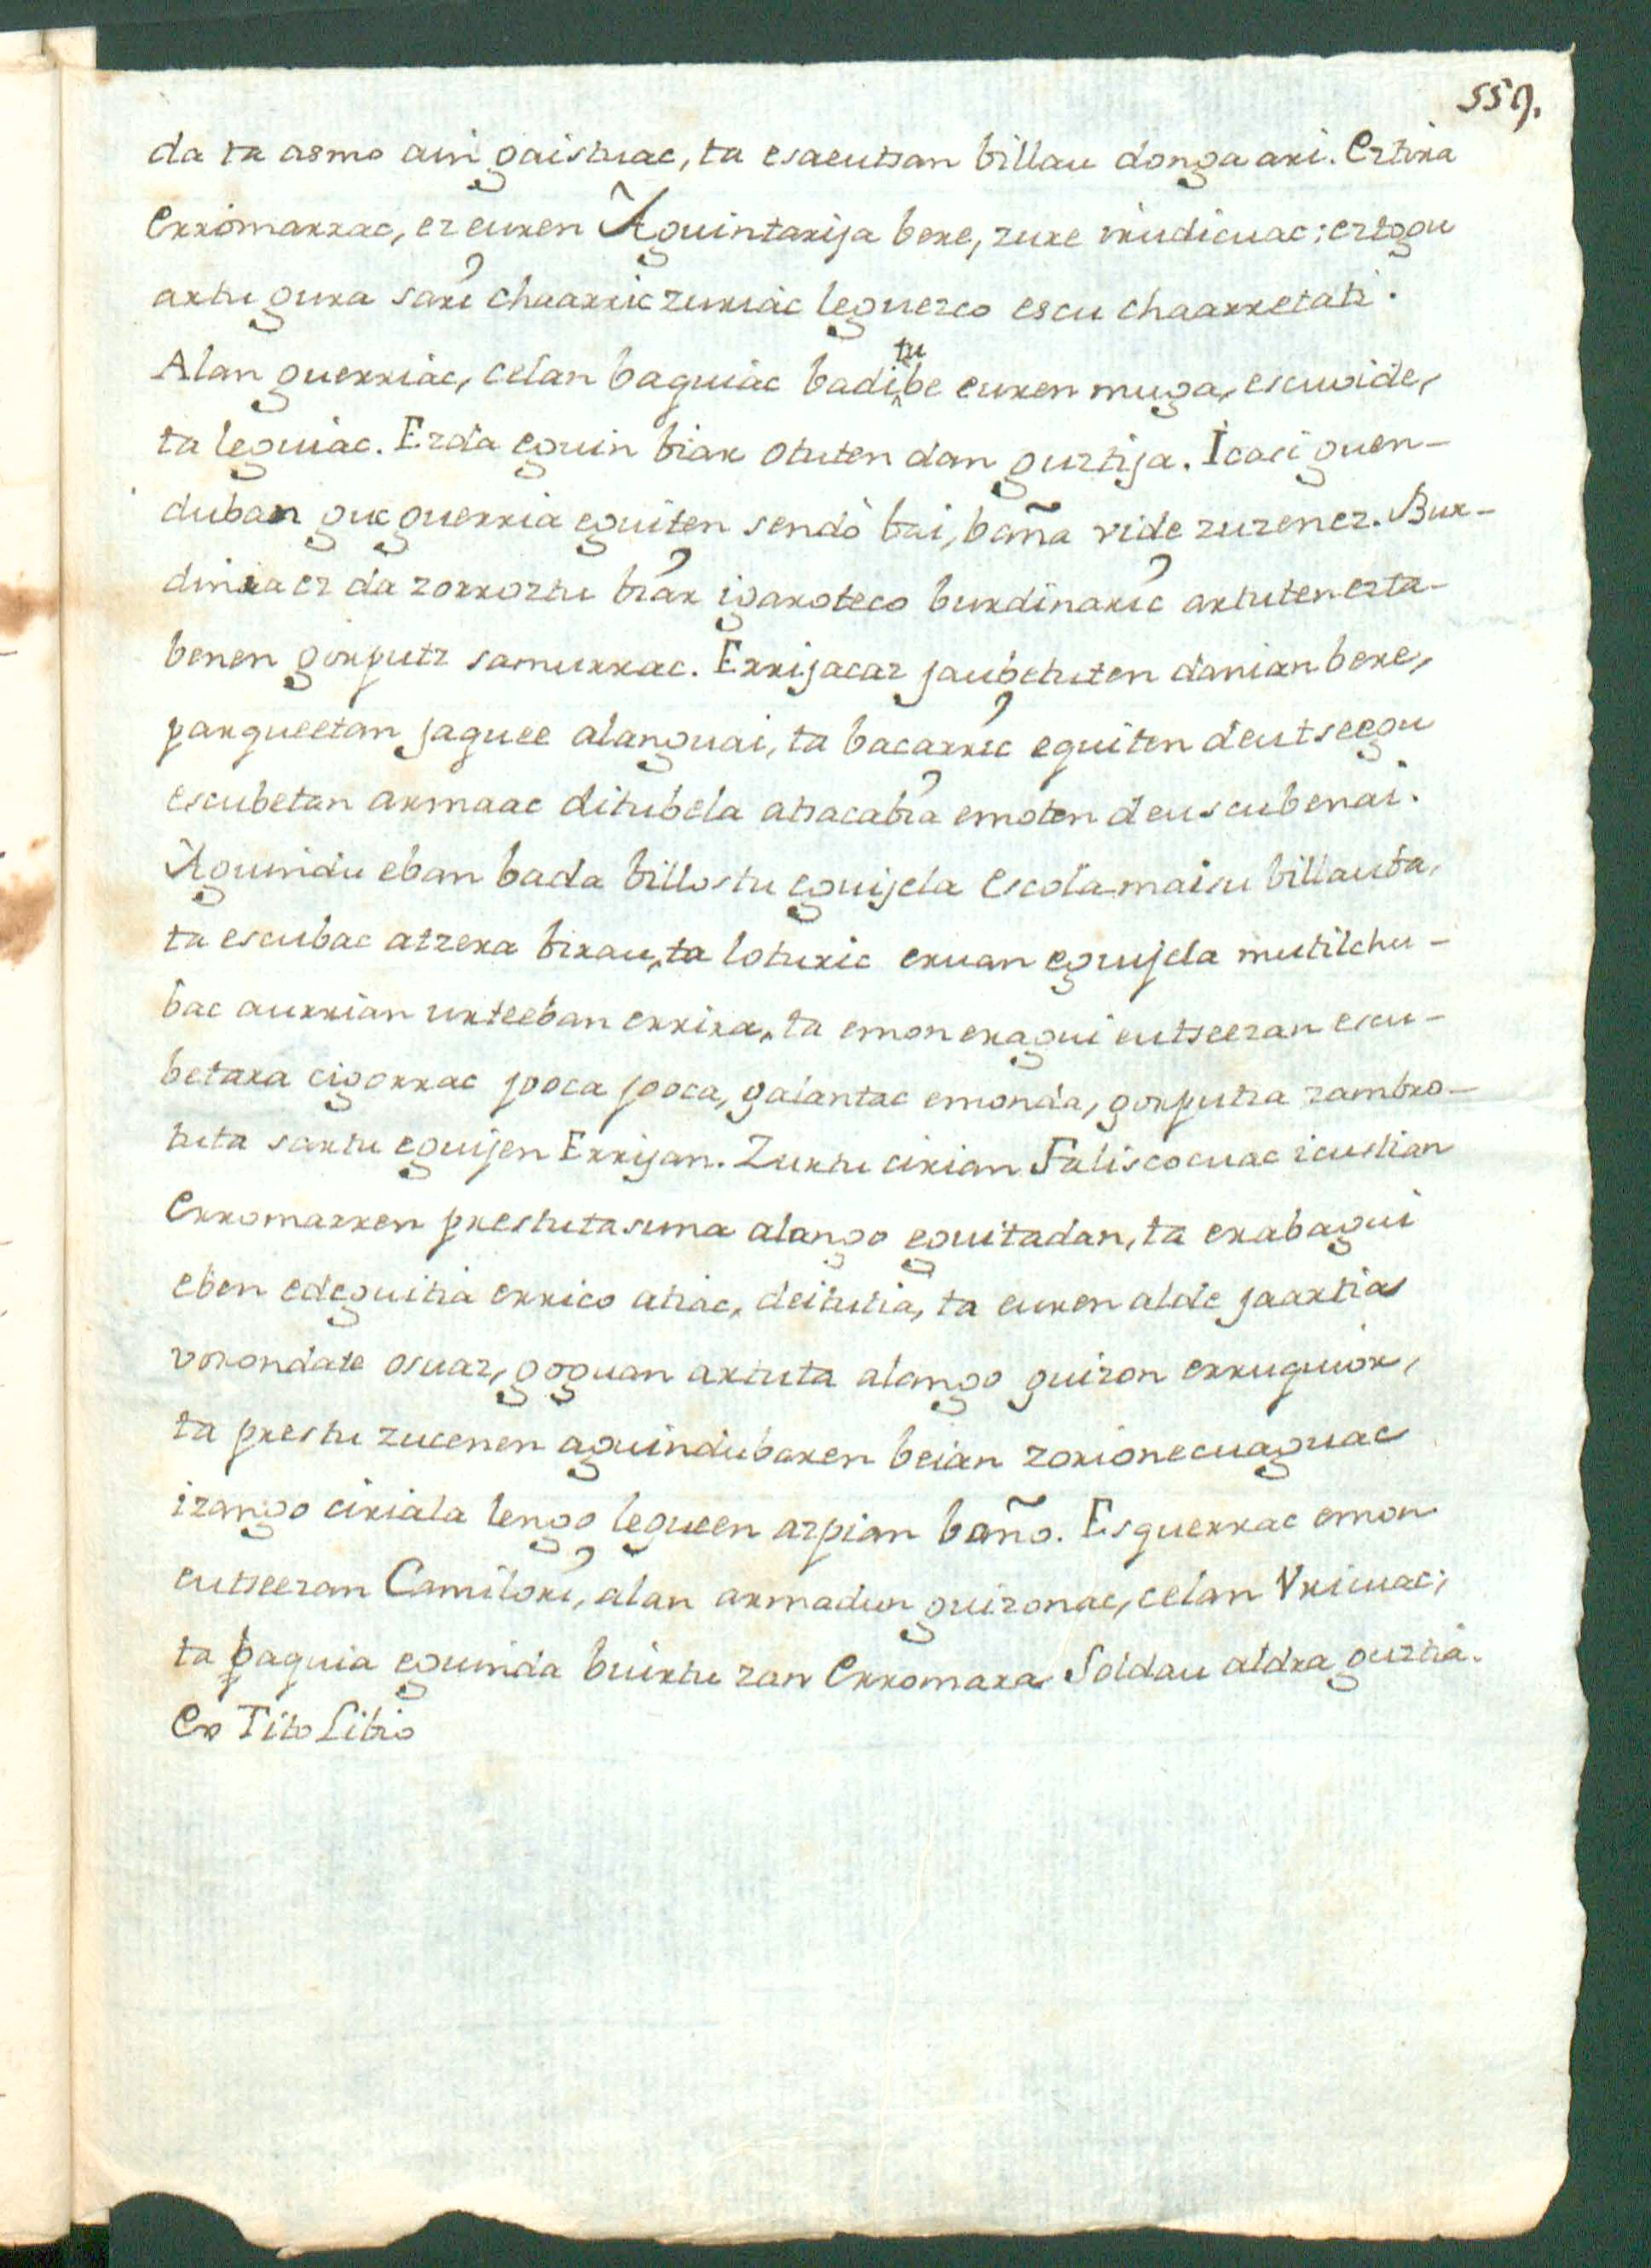 559.
da ta asmo ain gaistuac, ta esaeutsan billau donga ari. Eztira
Erromarrac, ez euren Aguintarija bere, zure irudicuac; eztogu
artu gura sari chaarric zuriac leguezco escu chaarretati.
Alan guerriac, celan baguiac baditube euren muga, escuvide,
ta leguiac. Ezda eguin biar otuten dan guztija. Icasi guen-
duban guc guerria eguiten sendo bai, baña vide zuzenez. Bur-
dinia ez da zorroztu biar igaroteco burdinaric artuten ezta-
benen gorputz samurrac. Errijacaz jaubetuten danian bere,
parqueetan jaquee alanguai, ta bacarric eguiten deutseegu
escubetan armaac ditubela atiacabia emoten deuscubenai.
Aguindu eban bada billostu eguijela Escolamaisu billauba,
ta escubac atzera birau, ta loturic eruan eguijela mutilchu-
bac aurrian urteeban errira, ta emon eragui eutseezan escu-
betara cigorrac joca joca, galantac emonda, gorputza zambro-
tuta sartu eguijen Errijan. Zurtu cirian Faliscocuac icustian
Erromarren prestutasuna alango eguitadan, ta erabagui
eben edeguitia errico atiac, deitutia, ta euren alde jaartia
vorondate osuaz, goguan artuta alango guizon erruquior,
ta prestu zucenen aguindubaren beian zorionecuaguac
izango ciriala lengo legueen azpian baño. Esquerrac emon
eutseezan Camilori, alan armadun guizonac, celan Vricuac;
ta paquia eguinda buirtu zan Erromara Soldau aldra guztia.
Ex Tito Libio